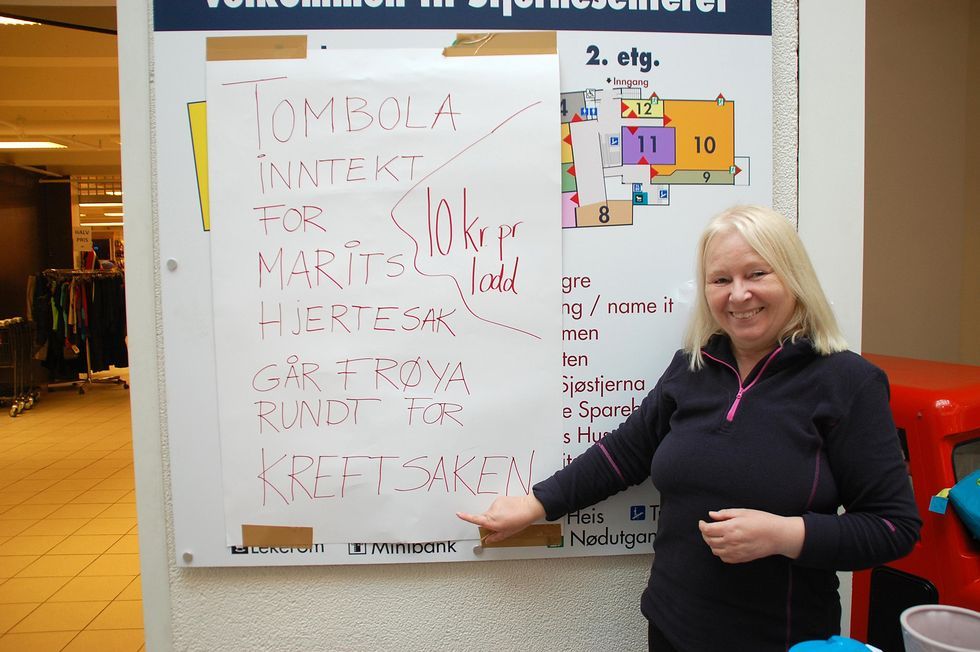 Velkommen til Stjørnesenteret
TOMBOLA
INNTEKT
FOR
MARITS
HJERTESAK
GÅR FRØYA
RUNDT FOR
KREFTSAKEN
10 kr. pr
lodd
2. etg.
Inngang
4
12
11
10
9
8
gre
ng / name it
men
ten
Sjøstjerna
e Spareb
s Hus
Heis
Nødutgan
Lekerom
Minibank
HALV
PRIS